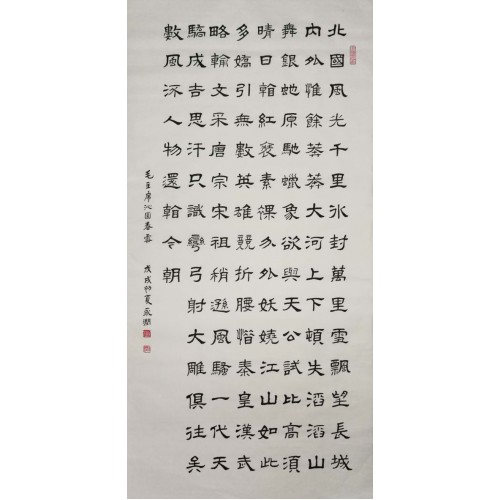 北國風光千里冰封萬里雪飄望長城
内外惟餘莽莽大河上下頓失滔滔山
舞銀蛇原馳蠟象欲與天公試比高須
晴日看紅裹素裸分外妖嬈江山如此
多嬌引無數英雄競折腰惜秦皇漢武
略輸文采唐宗宋祖稍遜風騷一代天
驕成吉思汗只識彎弓射大雕俱往矣
數風流人物還看今朝
毛主席沁園春雪 戊戌初夏